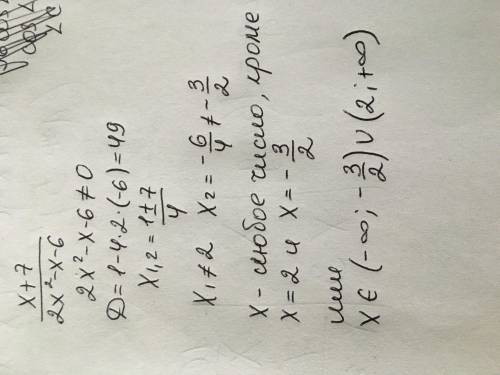 x+7
2x²-x-6
2x²-x-6≠0
D=1-4·2·(-6)=49
x₁,₂=1±7/4
x₁≠2 x₂=-6/4≠-3/2
x-любое число, кроме
x=2 и x=-3/2
или
x∈(-∞;-3/2)∪(2;+∞)